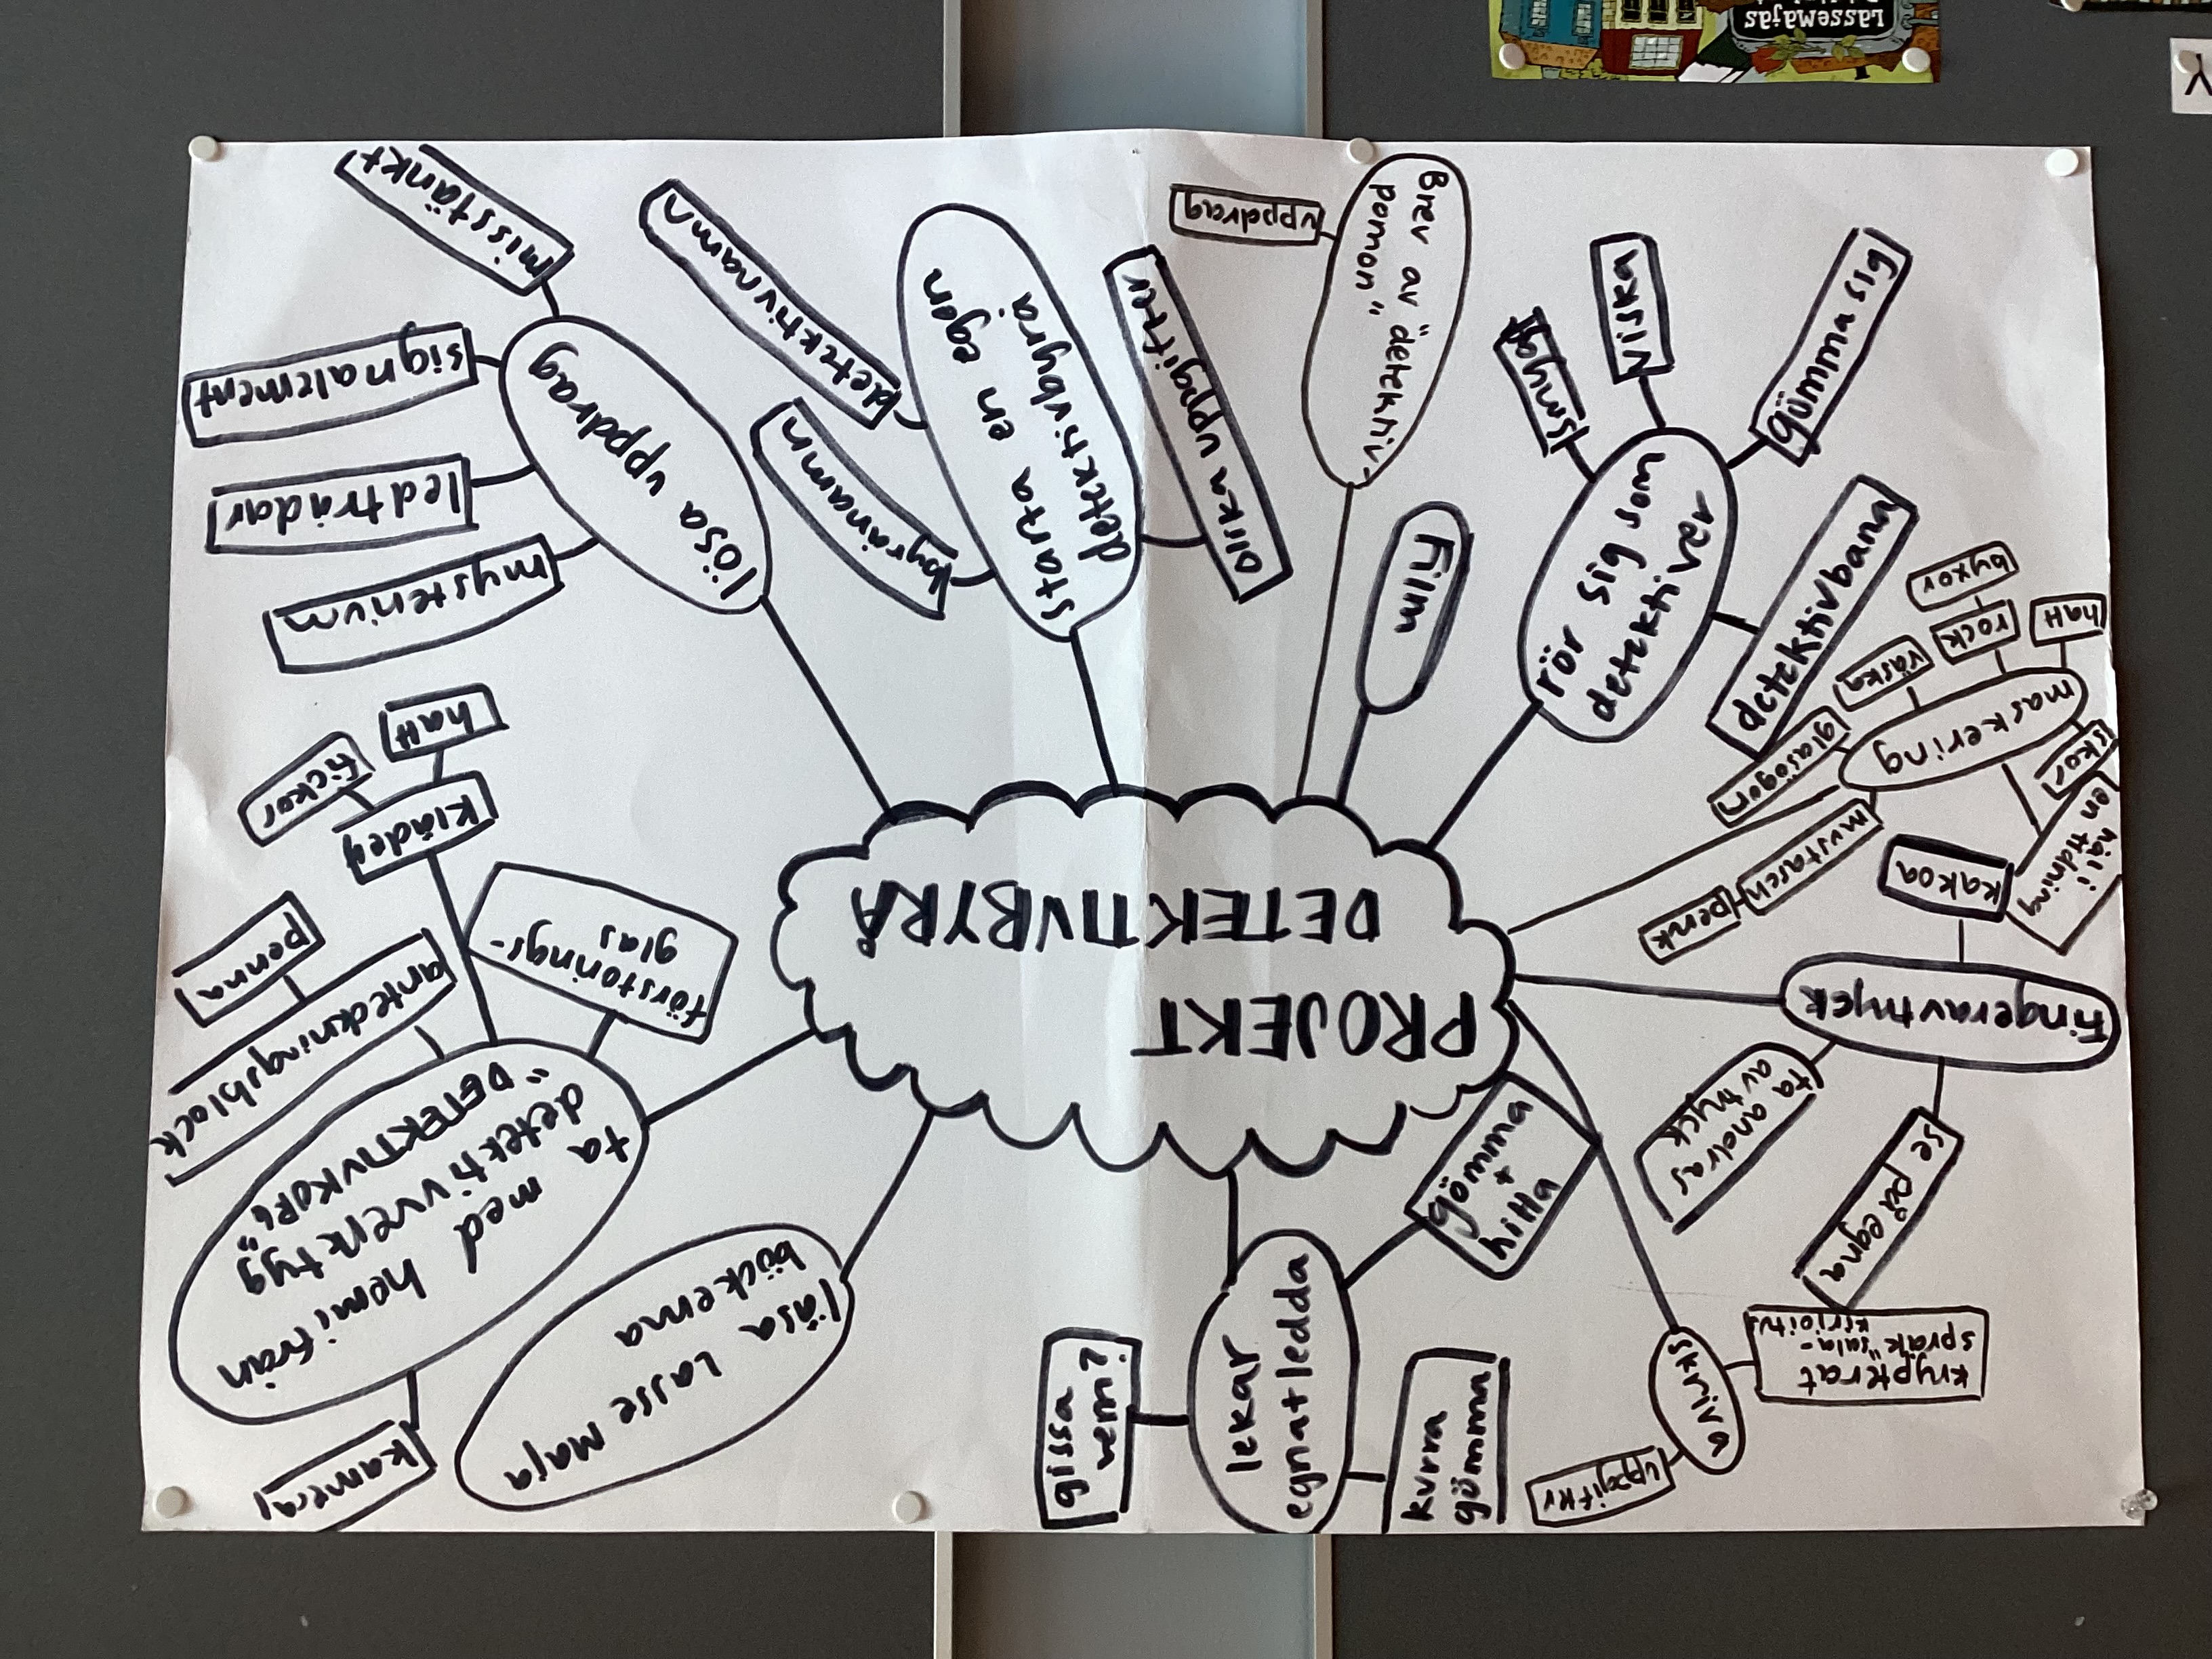 PROJEKT
DETEKTIVBYRÅ
lekar
egnatledda
gömma
+
hitta
gissa
vem?
kurra
gömma
läsa Lasse Maja
böckerna
ta med hemifrån
detektivverktyg
"DETEKTIVKORG"
kamera
förstorings-
glas
anteckningsblock
penna
kläder
fickor
hatt
lösa uppdrag
mysterium
ledtrådar
signalement
misstänkt
starta en egen
detektivbyrå
byrånamn
detektivnamn
olika uppgifter
Brev av "detektiv-
pomon"
uppdrag
Film
rör sig som
detektiver
smyga
viska
gömma sig
detektivbana
maskering
glasögon
väska
rock
byxor
hatt
skor
hål i
en tidning
mustasch
penk
Fingeravtryck
kakoa
ta andras
avtryck
se på egna
skriva
kryptrat
språk "sala-
kirjoitus
uppgifter
LASSEMAJAS